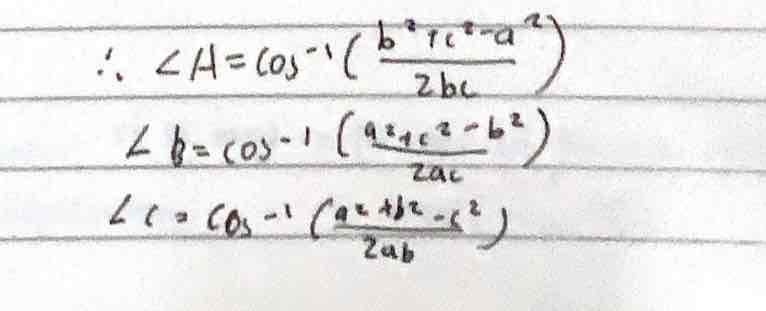 ∴ ∠A = cos⁻¹ ( (b² + c² - a²) / 2bc )
∠B = cos⁻¹ ( (a² + c² - b²) / 2ac )
∠C = cos⁻¹ ( (a² + b² - c²) / 2ab )